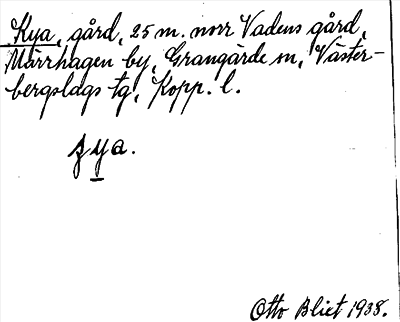 Kya, gård, 25 m. norr Vadens gård,
Märrhagen by, Grangärde sn, Väster-
bergslags tg, Kopp. l.
ʒya.
Otto Blixt 1938.